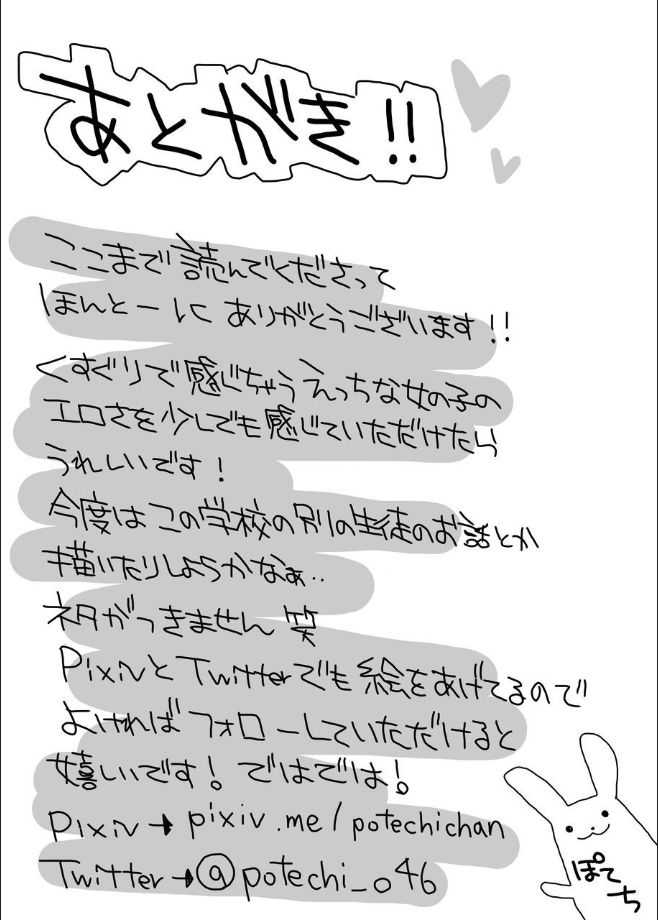 あとがき!!
ここまで読んでくださって
ほんとーにありがとうございます!!
くすぐりで感じちゃうえっちな女の子の
エロさを少しでも感じていただけたら
うれしいです!
今度はこの学校の別の生徒のお話とか
描いたりしようかなぁ..
ネタがつきません 笑
PixivとTwitterでも絵をあげてるので
よければフォローしていただけると
嬉しいです!ではでは!
Pixiv→pixiv.me/potechichan
Twitter→@potechi_046
ぽてち